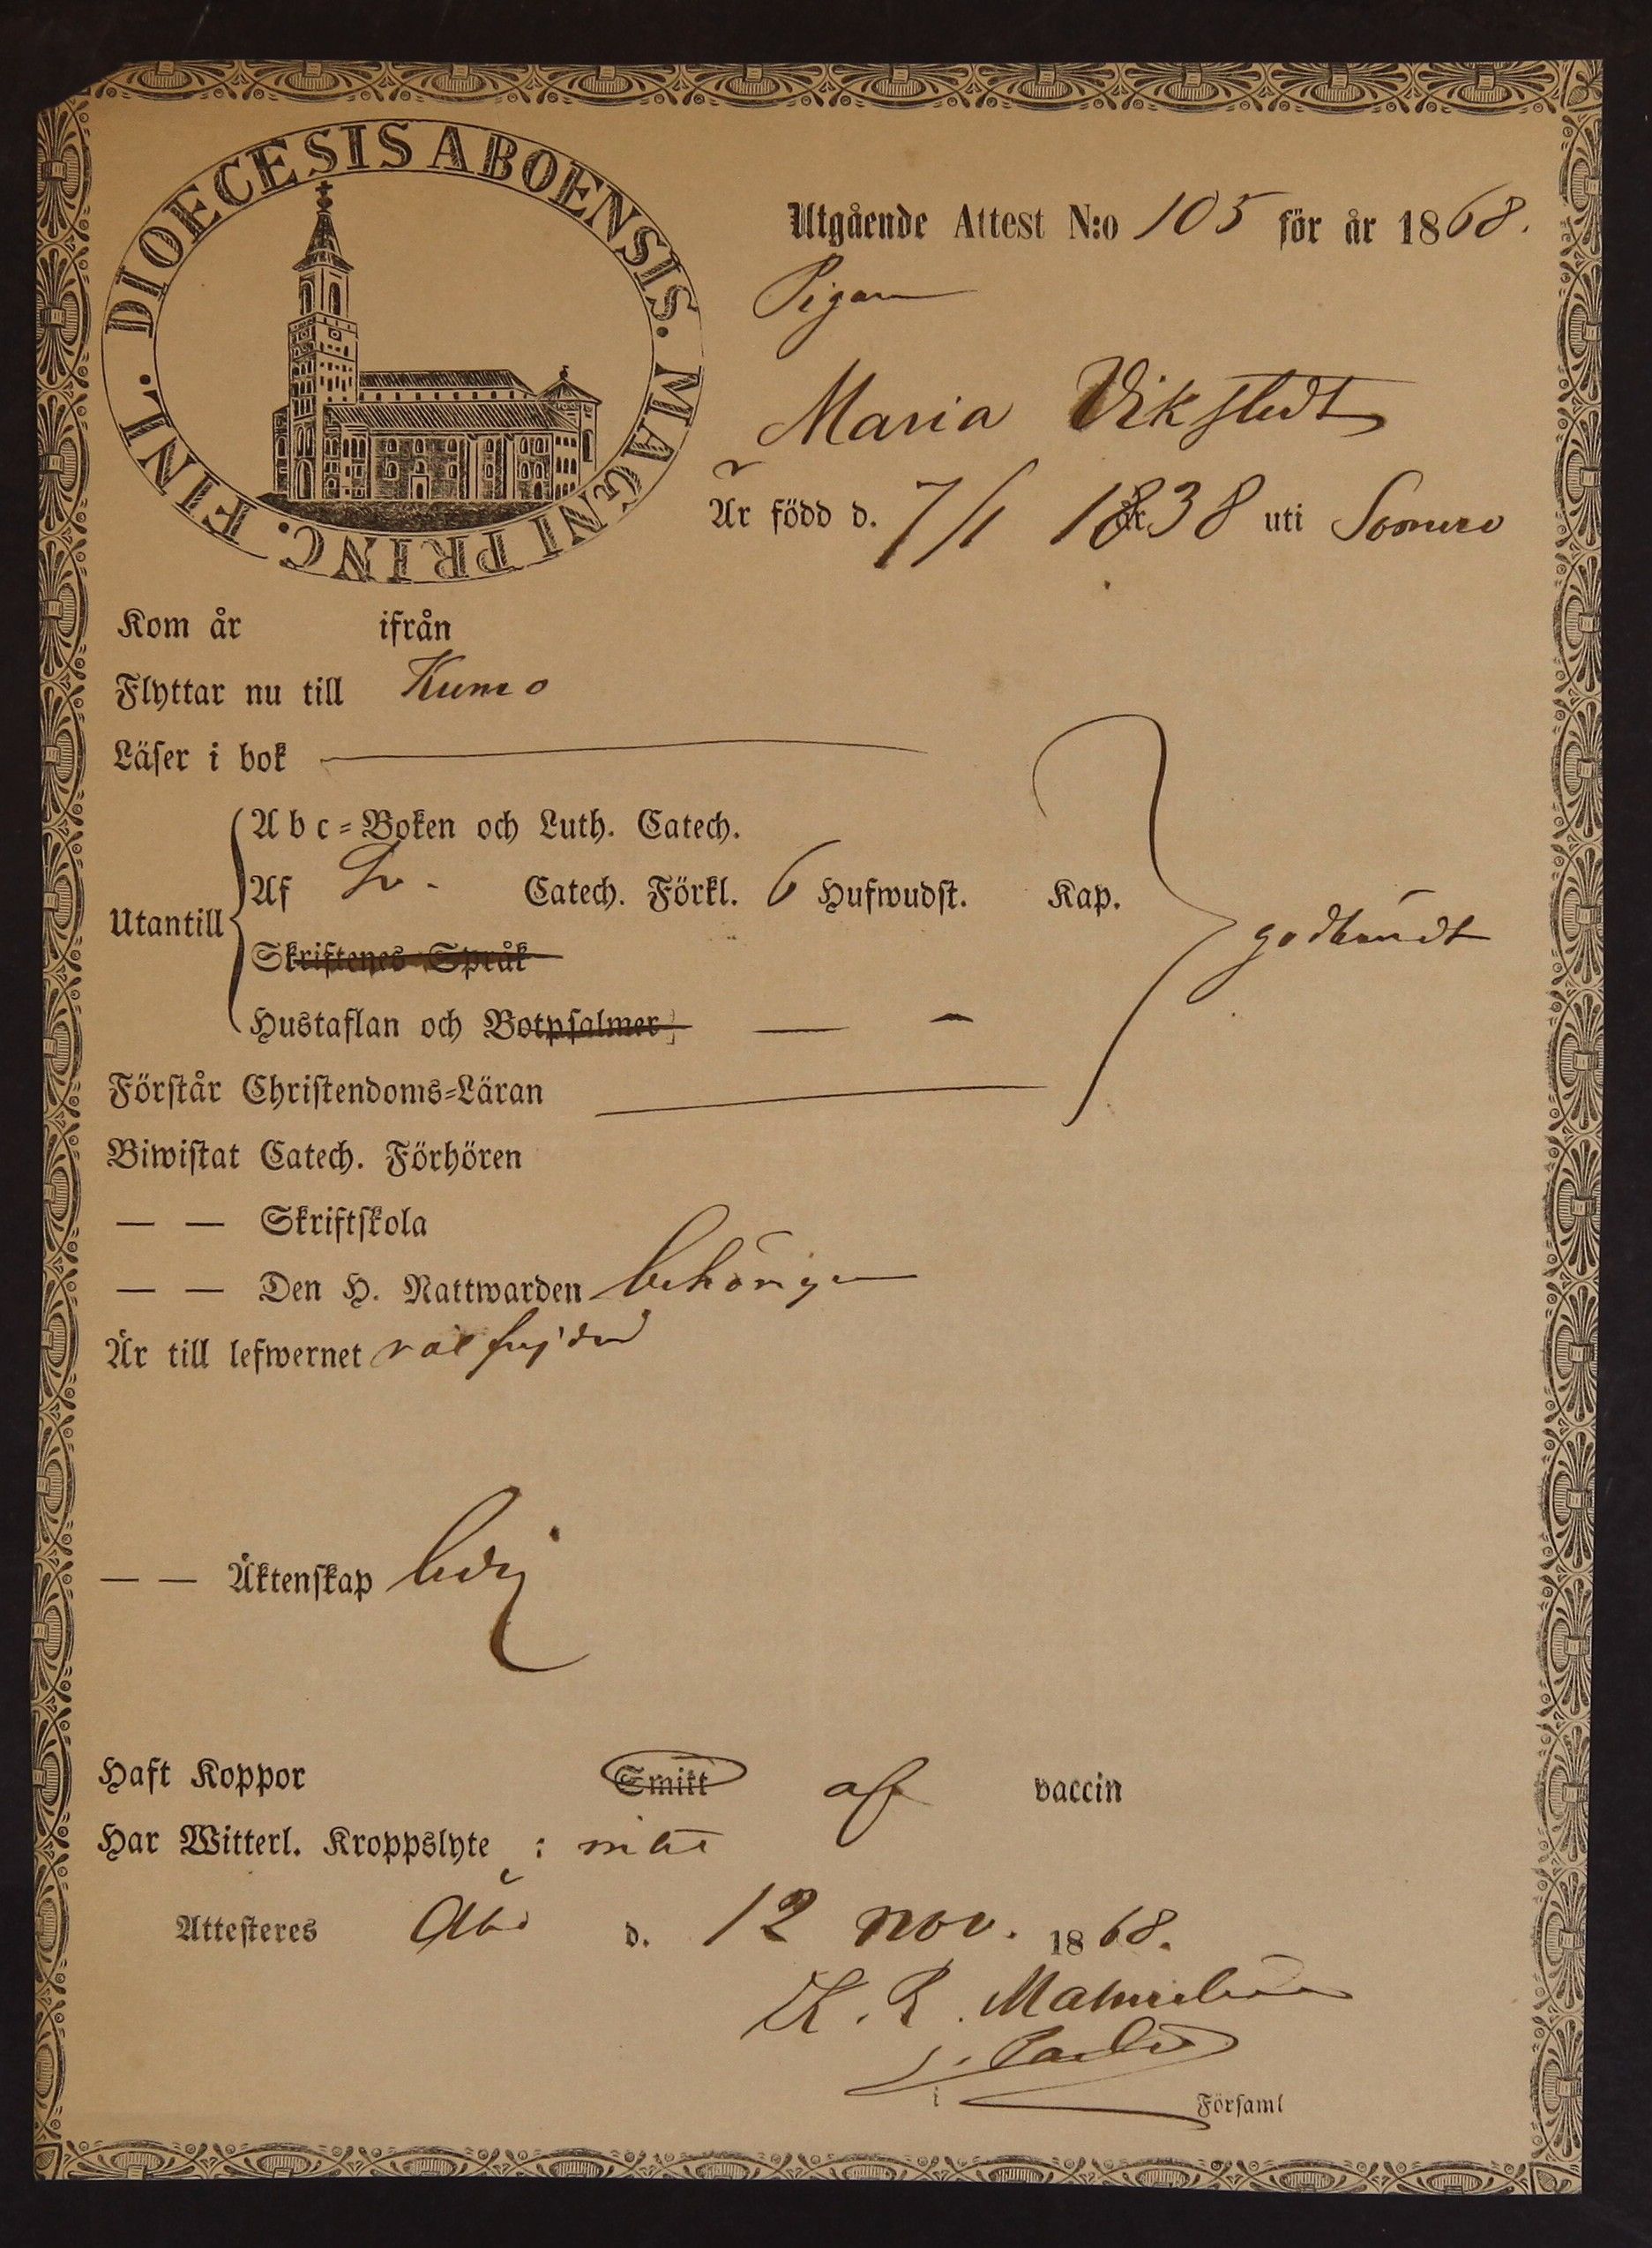 DIOECESIS ABOENSIS. MAGNI PRINC. FINL.
Utgående Attest N:o 105 för år 1868.
Pigan
Maria Vikstedt
Är född d. 7/1 1838 uti Somero
Kom år ifrån
Flyttar nu till Kumo
Läser i bok
Abc-Boken och Luth. Catech.
Af Sv. Catech. Förkl. 6 Hufwudst. Kap.
Utantill
godkändt
Skriftenes Språk
Hustaflan och Botpsalmer
Förstår Christendoms-Läran
Biwistat Catech. Förhören
— — Skriftskola
— — Den H. Nattwarden behörigen
Är till lefwernet väl frejdad
— — Äktenskap ledig
Haft Koppor Smitt af vaccin
Har Witterl. Kroppslyte : icke
Attesteres Åbo d. 12 nov. 1868.
K. R. Malmström
i Församl